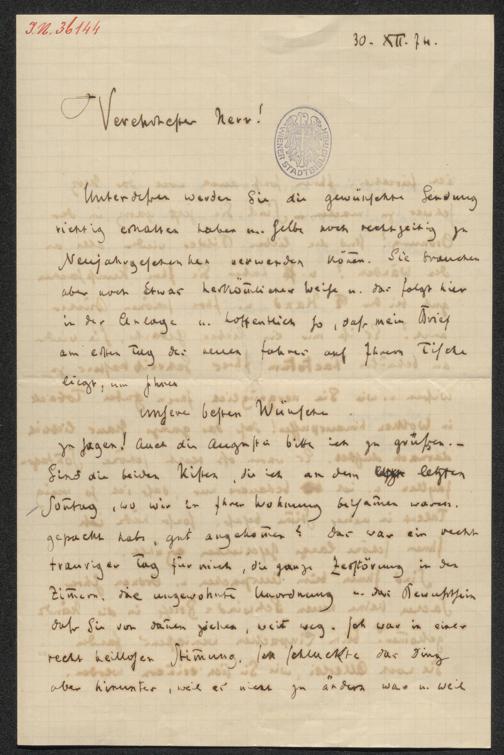 J.N. 36144
30. XII. 74.
Verehrtester Herr!
WIENER STADTBIBLIOTHEK
Unterdessen werden Sie die gewünschte Sendung
richtig erhalten haben u. selbe noch rechtzeitig zu
Neujahrsgeschenken verwenden können. Sie brauchen
aber noch Etwas herkömlicher Weise u. das folgt hier
in der Anlage u. hoffentlich so, daß mein Brief
am ersten Tag des neuen Jahres auf Ihrem Tische
liegt, um Ihnen
unsere besten Wünsche
zu sagen! Auch die Augusta bitte ich zu grüßen. –
Sind die beiden Kisten, die ich an dem letzten
Sontag, wo wir in Ihrer Wohnung beisamen waren,
gepackt habe, gut angekomen? Das war ein recht
trauriger Tag für mich, die ganze Zerstörung in den
Zimern, die ungewohnte Unordnung u. das Bewußtsein
daß Sie von danen ziehen, weit weg. Ich war in einer
recht heillosen Stimung, ich schluckte das Ding
aber hinunter, weil es nicht zu ändern war u. weil